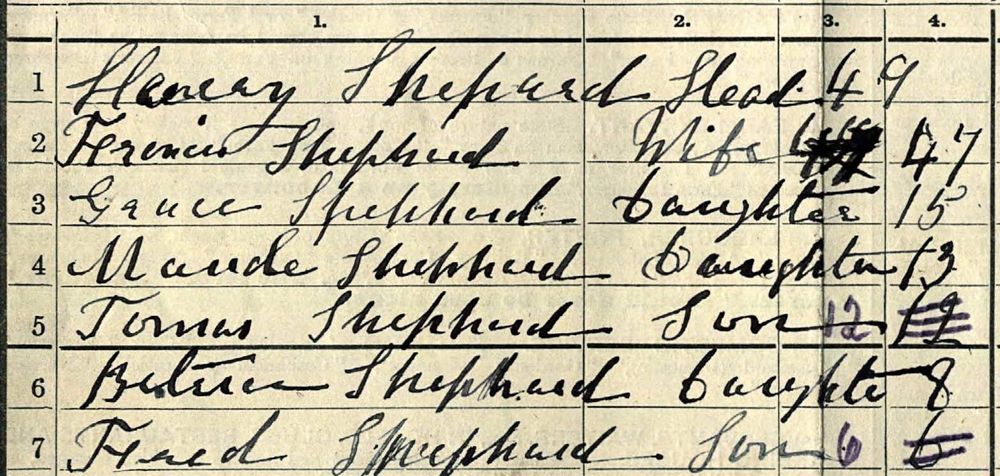 1. 2. 3. 4.
1 Harray Shephard Head 49
2 Shephard Wife 47
3 Grace Shephard Daughter 15
4 Maude Shephard Daughter 13
5 Tomas Shephard Son 12 12
6 Shephard Daughter 8
7 Fred Shephard Son 6 6